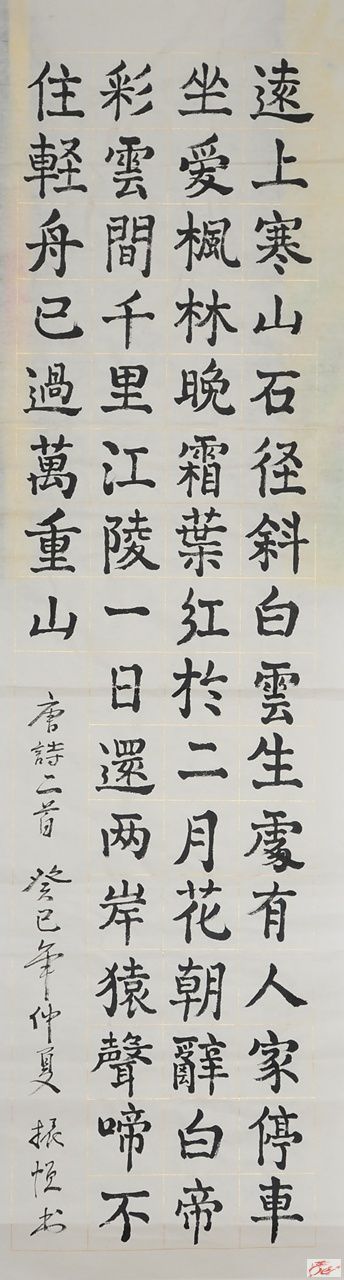 遠上寒山石径斜白雲生處有人家停車
坐爱楓林晚霜葉红於二月花朝辭白帝
彩雲間千里江陵一日還两岸猿聲啼不
住軽舟已過萬重山
唐詩二首 癸巳年仲夏 振恒书